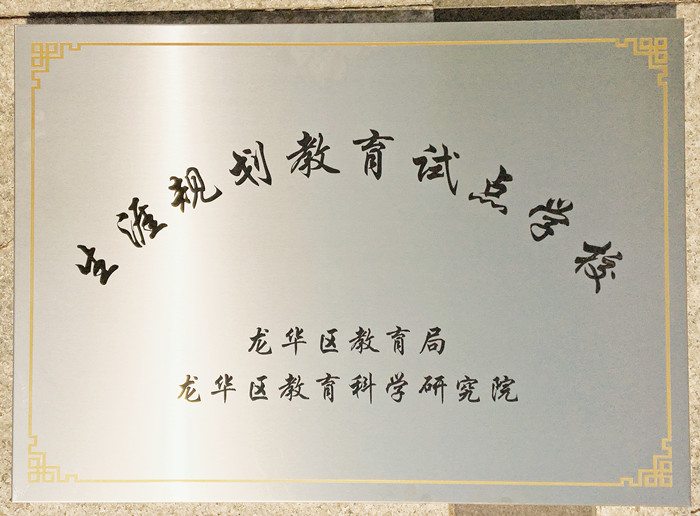 生涯规划教育试点学校
龙华区教育局
龙华区教育科学研究院